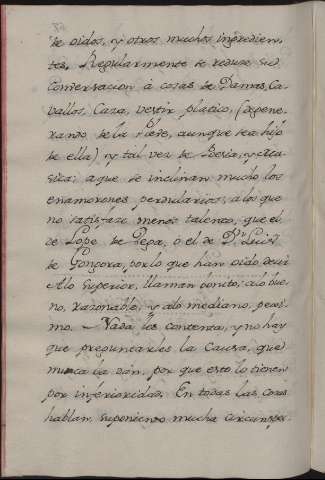 de oidos, y otros muchos ingredien-
tes. Regularmente se reduce su
conversacion à cosas de Damas, Ca-
vallos, Caza, vestir, platico, (
rando de la Plebe, aunque sea hijo
de ella) y tal vez de Poesia, y Mu-
sica; à que se inclinan mucho los
enamorones perdularios, à los que
no satisface menos talento, que el
de Lope de Vega, ò el de Dn. Luis
de Gongora, por lo que han oido decir
Alo Superior, llaman bonito; alo bue-
no, razonable, y alo mediano, pesi-
mo. Nada les contenta, y no hay
que preguntarles la causa, que
nunca la dan, por que esto lo tienen
por inferioridad. En todas las cosas
hablan, suponiendo mucha circunspec-